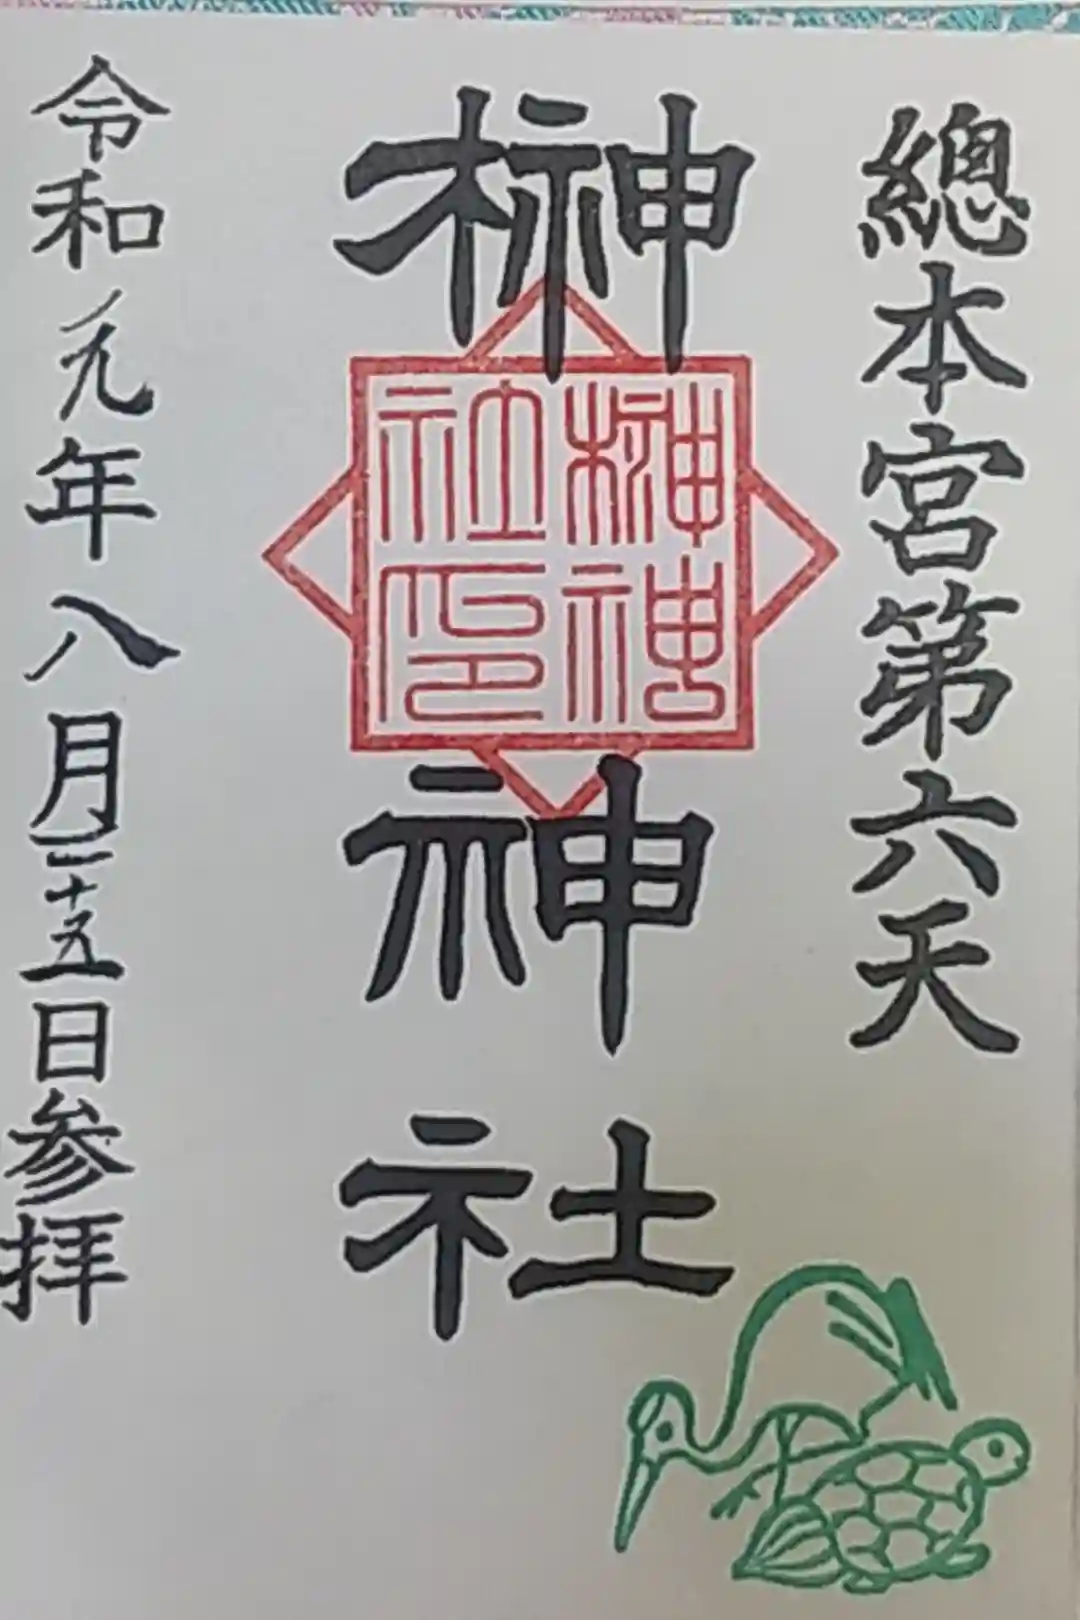 總本宮第六天
榊神社
榊神社印
令和元年八月二十五日参拝